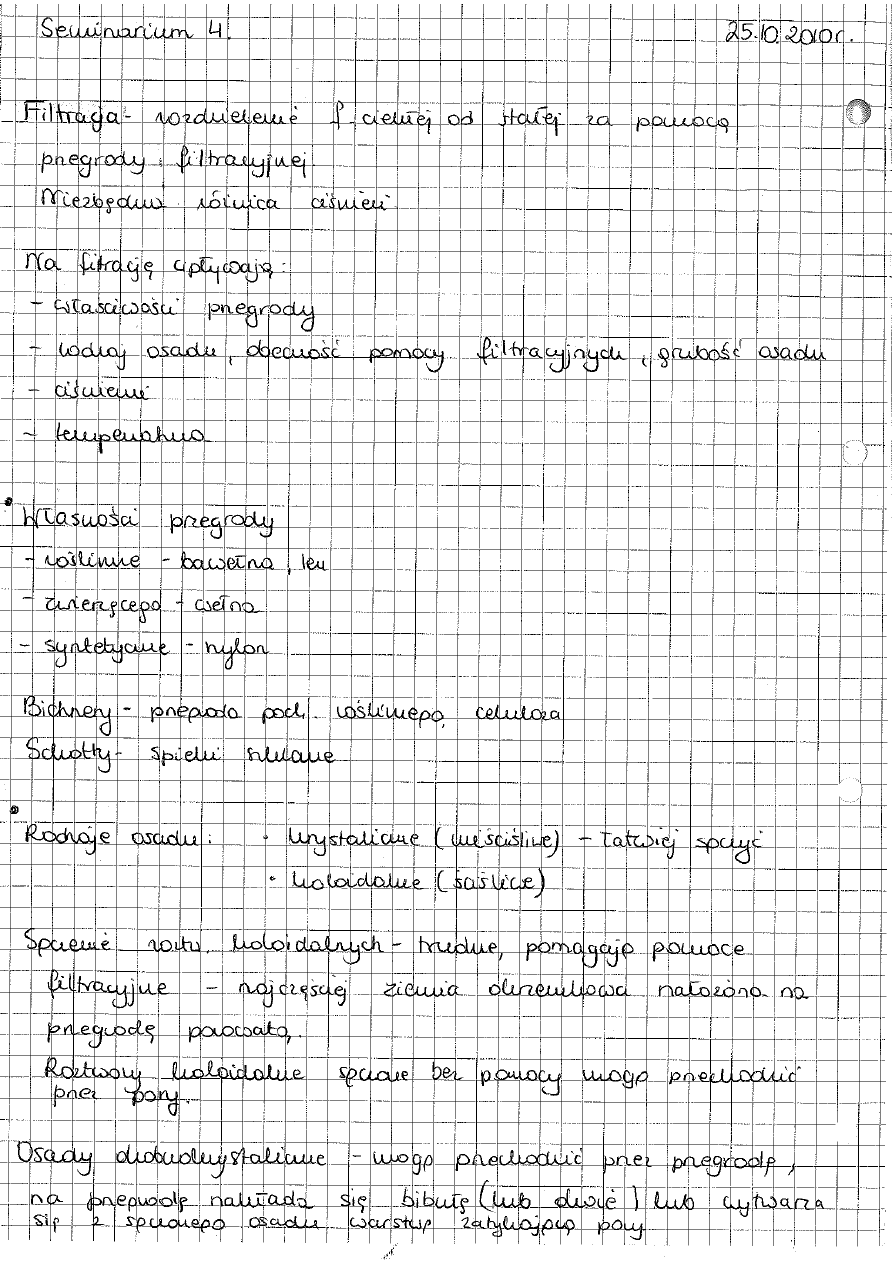 Seminarium 4.
25.10.2010r.
Filtracja - rozdzielenie f. ciekłej od stałej za pomocą
przegrody filtracyjnej
Niezbędna różnica ciśnień
Na filtrację wpływają:
- właściwości przegrody
- rodzaj osadu, obecność pomocy filtracyjnych, grubość osadu
- ciśnienie
- temperatura
• Własności przegrody
- roślinne - bawełna, len
- zwierzęcego - wełna
- syntetyczne - nylon
Bichnery - przegroda poch. roślinnego, celuloza
Schotty - spieki szklane
• Rodzaje osadu: • krystaliczne (nieściśliwe) - łatwiej sączyć
• koloidalne (ściśliwe)
Sączenie roztw. koloidalnych - trudne, pomagają pomoce
filtracyjne - najczęściej ziemia okrzemkowa nałożona na
przegrodę porowatą.
Roztwory koloidalne sączone bez pomocy mogą przechodzić
przez pory.
Osady drobnokrystaliczne - mogą przechodzić przez przegrodę,
na przegrodę nakłada się bibułę (lub dwie) lub wytwarza
się z sączonego osadu warstwę zatykającą pory